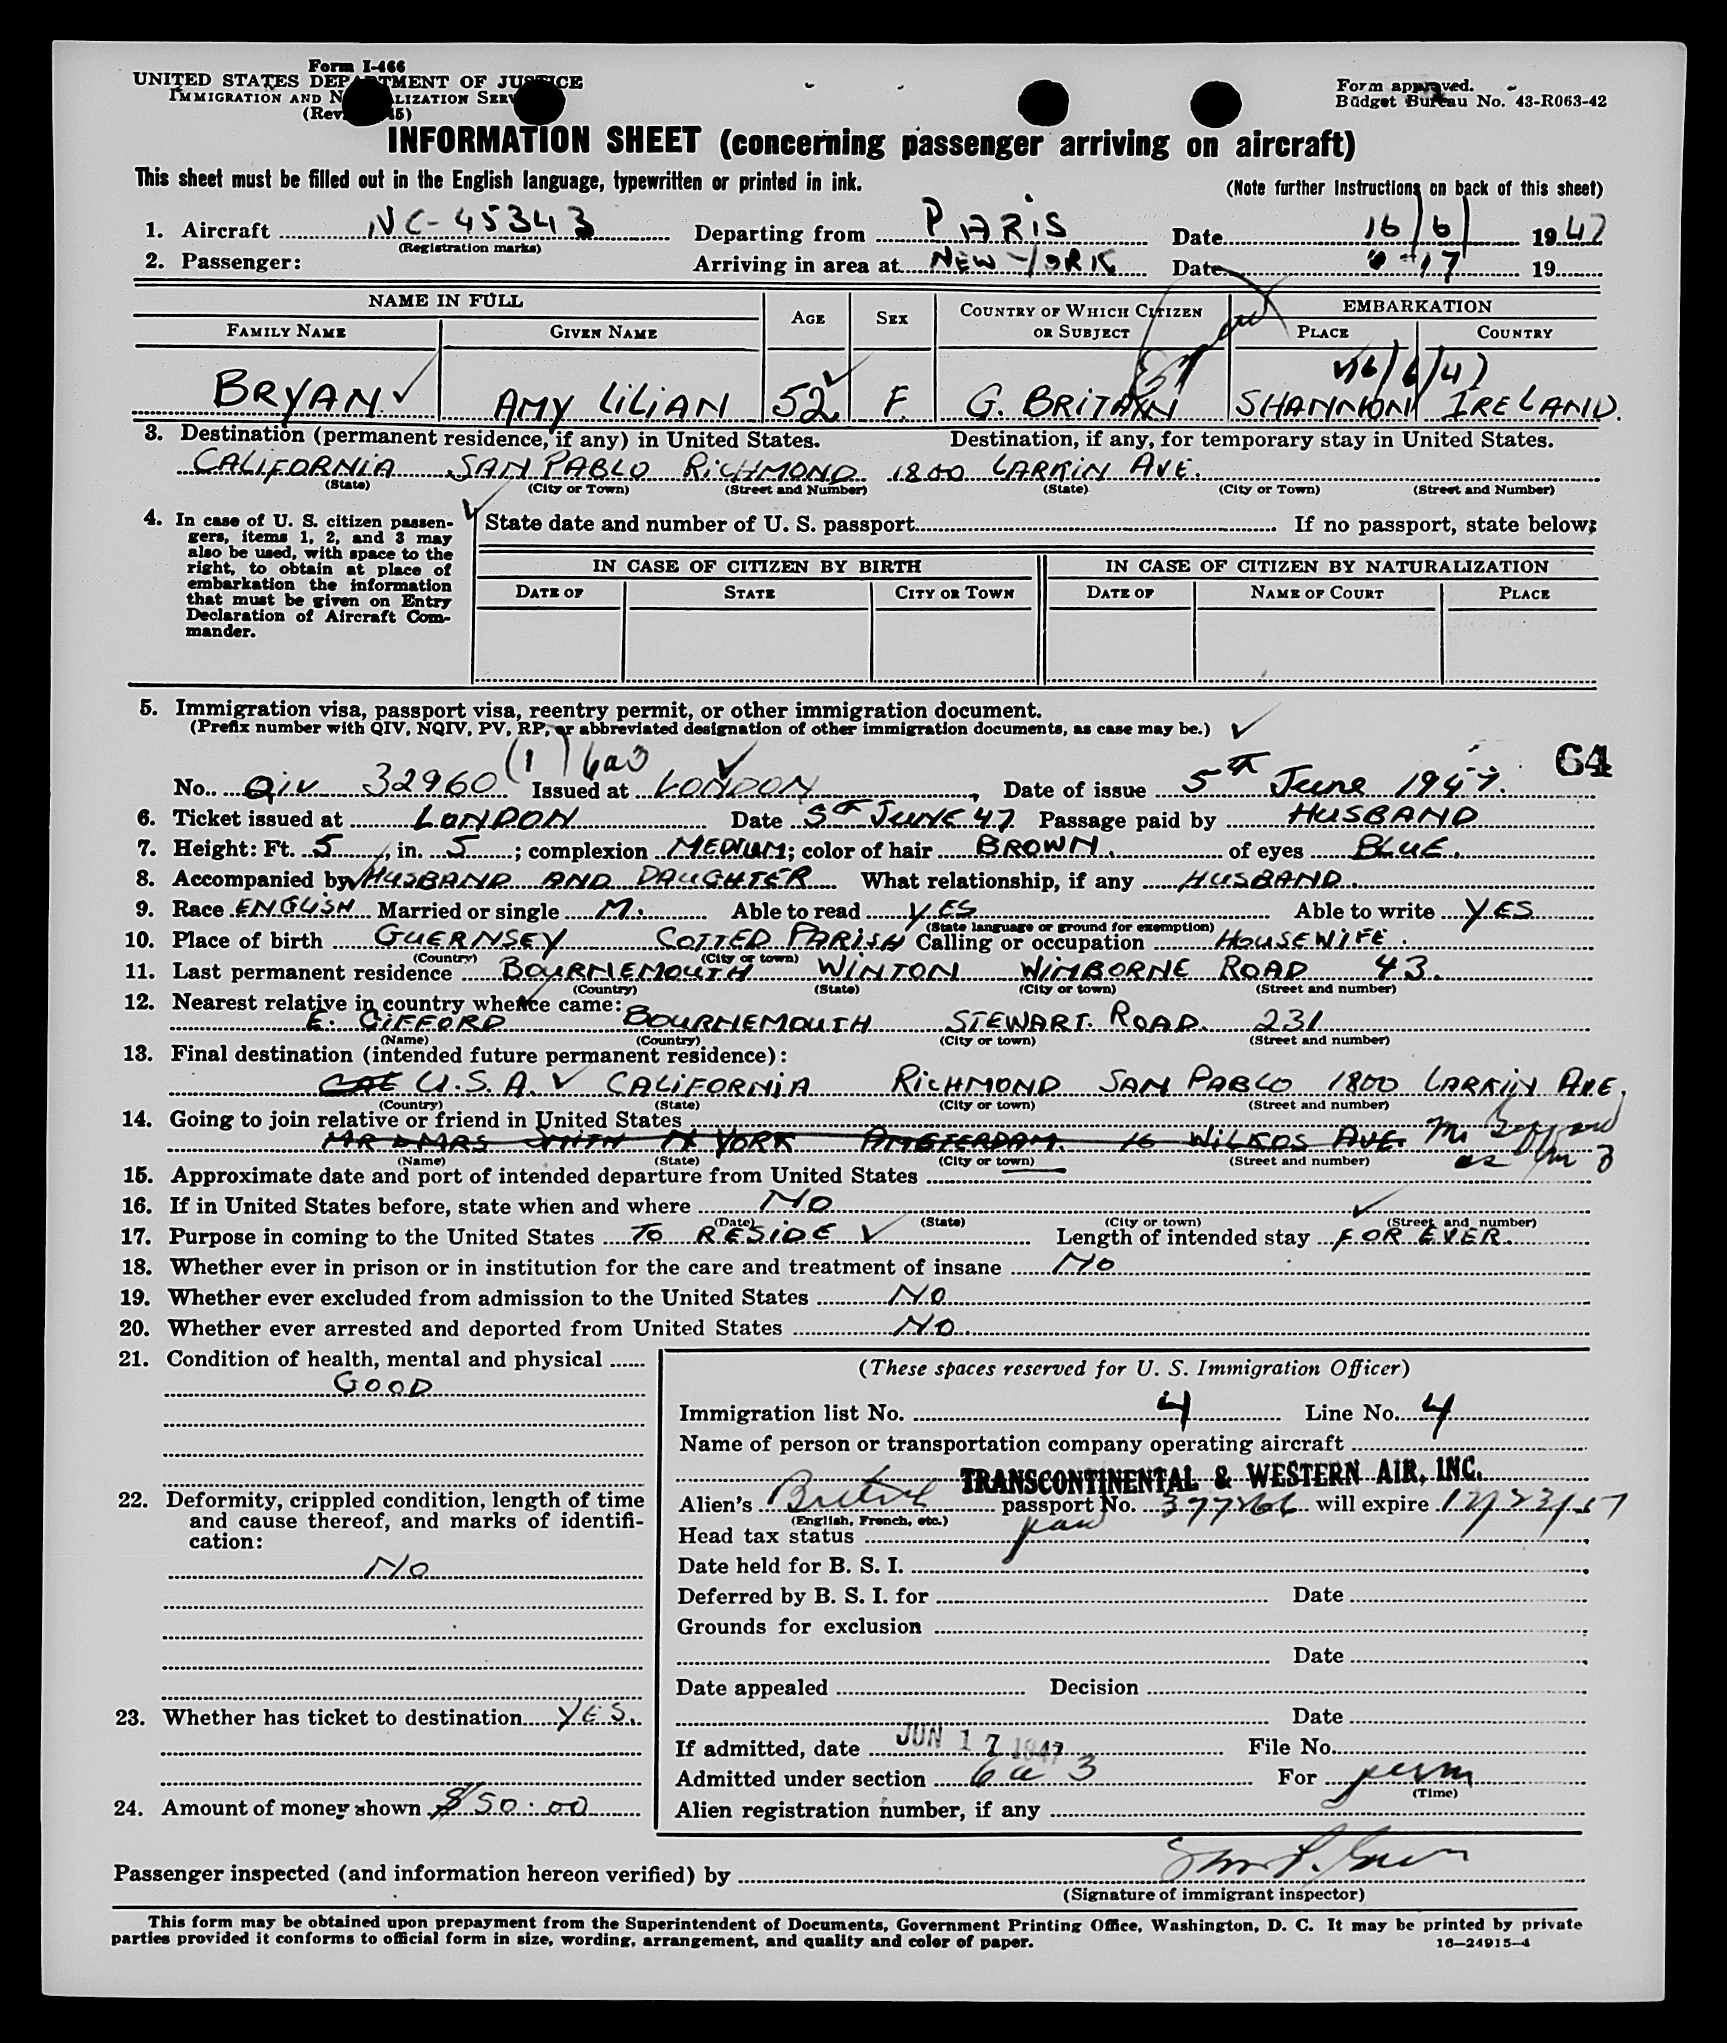 Form I-466
UNITED STATES DEPARTMENT OF JUSTICE
IMMIGRATION AND NATURALIZATION SERV
(Rev. 45)
Form approved.
Budget Bureau No. 43-R063-42
INFORMATION SHEET (concerning passenger arriving on aircraft)
This sheet must be filled out in the English language, typewritten or printed in ink.
(Note further instructions on back of this sheet)
1. Aircraft NC-45343 Departing from PARIS Date 16/6/ 1947
(Registration marks)
2. Passenger: Arriving in area at NEW-YORK Date 6-17 19
NAME IN FULL AGE SEX COUNTRY OF WHICH CITIZEN OR SUBJECT EMBARKATION
FAMILY NAME GIVEN NAME PLACE COUNTRY
16/6/47
BRYAN AMY LILIAN 52 F. G. BRITAIN SHANNON IRELAND.
3. Destination (permanent residence, if any) in United States. Destination, if any, for temporary stay in United States.
CALIFORNIA SAN PABLO RICHMOND 1800 LARKIN AVE.
(State) (City or Town) (Street and Number) (State) (City or Town) (Street and Number)
4. In case of U. S. citizen passengers, items 1, 2, and 3 may also be used, with space to the right, to obtain at place of embarkation the information that must be given on Entry Declaration of Aircraft Commander.
State date and number of U. S. passport If no passport, state below:
IN CASE OF CITIZEN BY BIRTH IN CASE OF CITIZEN BY NATURALIZATION
DATE OF STATE CITY OR TOWN DATE OF NAME OF COURT PLACE
5. Immigration visa, passport visa, reentry permit, or other immigration document.
(Prefix number with QIV, NQIV, PV, RP, or abbreviated designation of other immigration documents, as case may be.)
(1) 6a3 64
No. QIV 32960 Issued at LONDON, Date of issue 5th June 1947.
6. Ticket issued at LONDON Date 5th JUNE 47 Passage paid by HUSBAND
7. Height: Ft. 5, in. 5; complexion MEDIUM; color of hair BROWN. of eyes BLUE.
8. Accompanied by HUSBAND AND DAUGHTER What relationship, if any HUSBAND.
9. Race ENGLISH Married or single M. Able to read YES Able to write YES
(State language or ground for exemption)
10. Place of birth GUERNSEY COTTED PARISH Calling or occupation HOUSEWIFE.
(Country) (City or town)
11. Last permanent residence BOURNEMOUTH WINTON WIMBORNE ROAD 43.
(Country) (State) (City or town) (Street and number)
12. Nearest relative in country whence came:
E. GIFFORD BOURNEMOUTH STEWART. ROAD. 231
(Name) (Country) (City or town) (Street and number)
13. Final destination (intended future permanent residence):
CAL U.S.A. CALIFORNIA RICHMOND SAN PABLO 1800 LARKIN AVE.
(Country) (State) (City or town) (Street and number)
14. Going to join relative or friend in United States
MR & MRS SMITH N YORK AMSTERDAM. 16 WILKOS AVE.
(Name) (State) (City or town) (Street and number)
15. Approximate date and port of intended departure from United States
16. If in United States before, state when and where NO
(Date) (State) (City or town) (Street and number)
17. Purpose in coming to the United States TO RESIDE Length of intended stay FOR EVER.
18. Whether ever in prison or in institution for the care and treatment of insane NO
19. Whether ever excluded from admission to the United States NO
20. Whether ever arrested and deported from United States NO.
21. Condition of health, mental and physical
GOOD
22. Deformity, crippled condition, length of time and cause thereof, and marks of identification:
NO
23. Whether has ticket to destination YES.
24. Amount of money shown $50.00
(These spaces reserved for U. S. Immigration Officer)
Immigration list No. 4 Line No. 4
Name of person or transportation company operating aircraft
TRANSCONTINENTAL & WESTERN AIR, INC.
Alien's British passport No. 377266 will expire
(English, French, etc.)
Head tax status paid
Date held for B. S. I.
Deferred by B. S. I. for Date
Grounds for exclusion
Date
Date appealed Decision
Date
If admitted, date JUN 17 1947 File No.
Admitted under section 6a3 For perm
(Time)
Alien registration number, if any
Passenger inspected (and information hereon verified) by
(Signature of immigrant inspector)
This form may be obtained upon prepayment from the Superintendent of Documents, Government Printing Office, Washington, D. C. It may be printed by private
parties provided it conforms to official form in size, wording, arrangement, and quality and color of paper.
16—24915-4